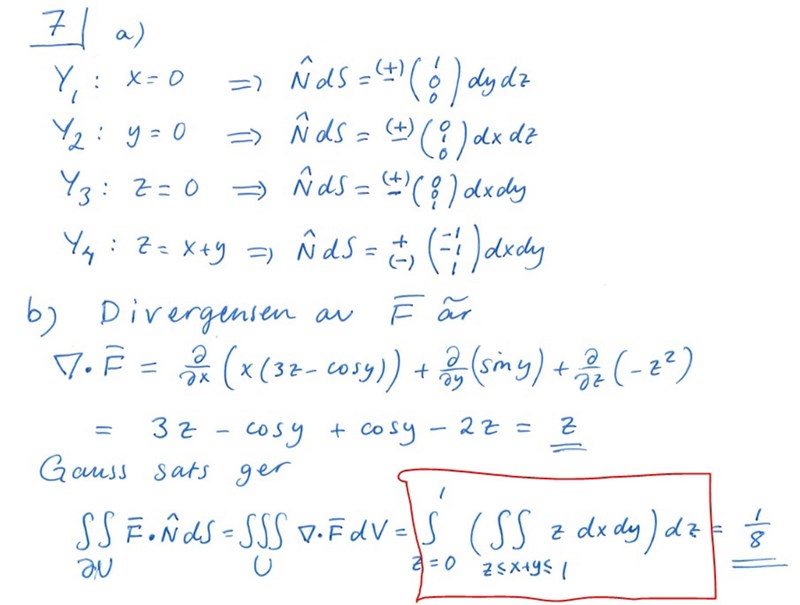 7 a)
Y₁ : x = 0 ⇒ N̂ dS = (+)/− (1 0 0) dy dz
Y₂ : y = 0 ⇒ N̂ dS = (+)/− (0 1 0) dx dz
Y₃ : z = 0 ⇒ N̂ dS = (+)/− (0 0 1) dx dy
Y₄ : z = x+y ⇒ N̂ dS = +/(−) (−1 −1 1) dx dy
b) Divergensen av F̄ är
∇·F̄ = ∂/∂x (x(3z − cosy)) + ∂/∂y (siny) + ∂/∂z (−z²)
= 3z − cosy + cosy − 2z = z
Gauss sats ger
∬_∂U F̄·N̂ dS = ∭_U ∇·F̄ dV = ∫_{z=0}^{1} (∬_{z≤x+y≤1} z dx dy) dz = 1/8